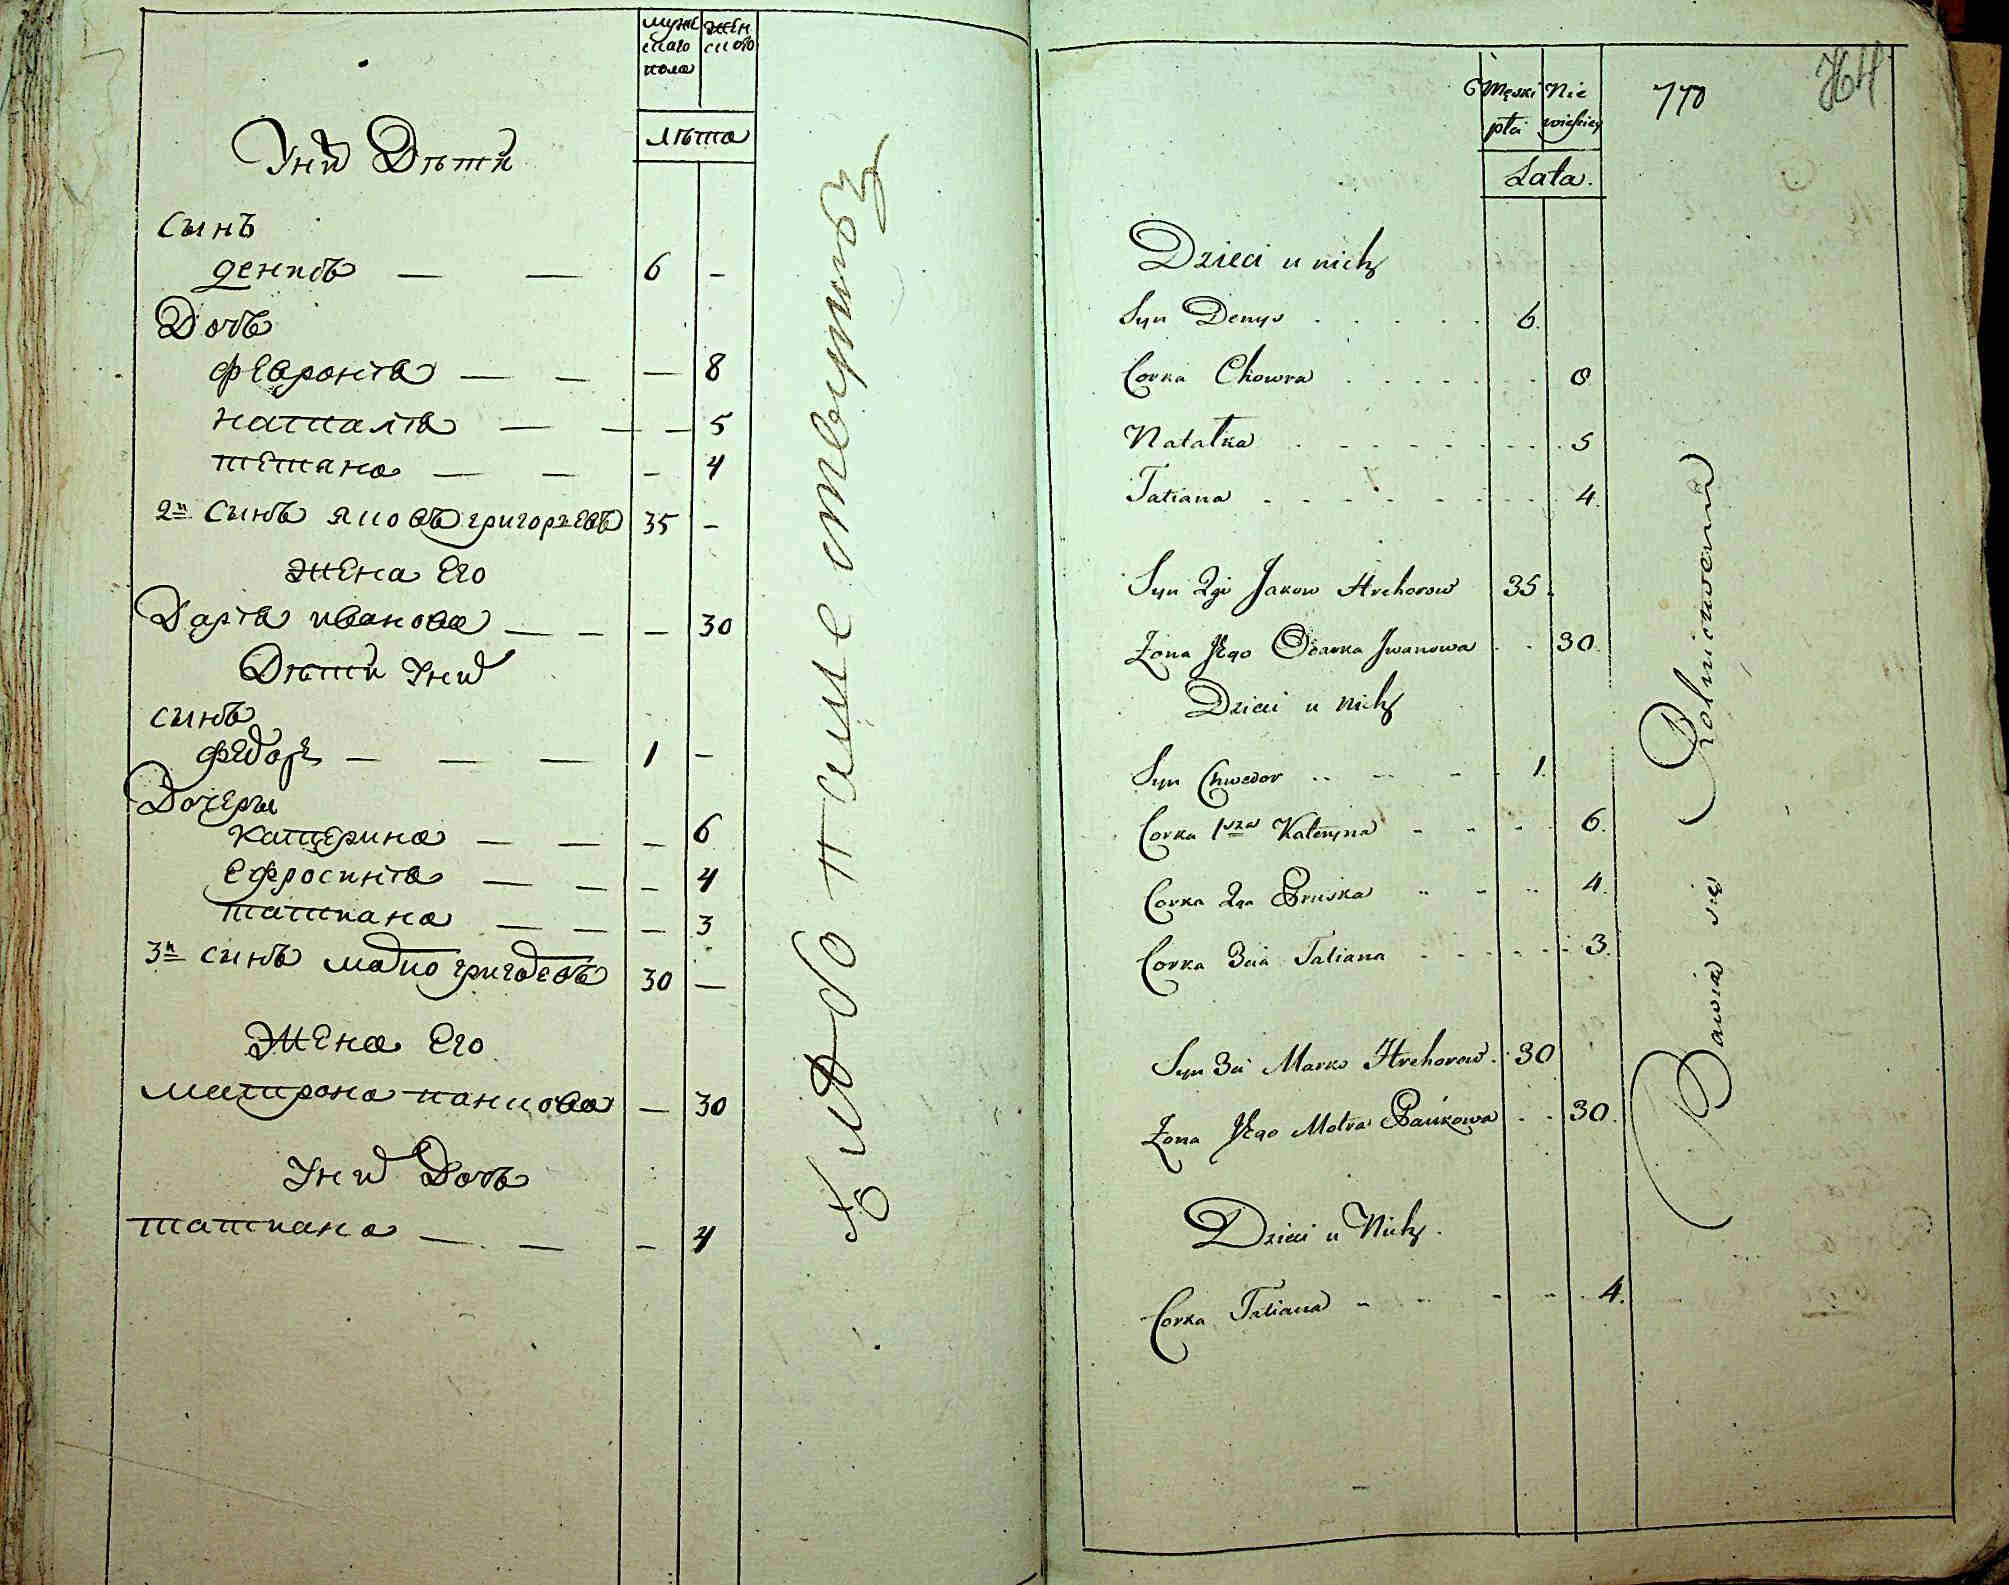 мужескаго пола
женскаго
лѣта
У ни Дѣти
сынъ
денисъ — — 6 —
Дочь
феѵронія — — — 8
наталія — — — 5
тетяна — — — 4
2й сынъ яковъ григорьевъ 35 —
жена Его
Дарія иванова — — — 30
Дѣти У ни
сынъ
федоръ — — — 1 —
Дочери
катерина — — — 6
ефросинія — — — 4
татиана — — — 3
3й синъ марко григоревъ 30 —
Жена Его
матрона панкова — 30
У ни Дочь
татиана — — — 4
хлѣбопашествуитъ
Męski płci
Niewieściey
770
Lata.
Dzieci u nich
Syn Denys . . . . . 6.
Corka Chowra . . . . . . . 8
Natałka . . . . . . . . 5
Tatiana . . . . . . . . 4.
Syn 2gi Jakow Hrehorow 35.
Żona Jego Odarka Jwanowa . . 30.
Dzieci u nich
Syn Chwedor . . . . 1.
Corka 1sza Kateryna . . . 6.
Corka 2ga Pruska . . . 4.
Corka 3cia Tatiana . . . . . 3.
Syn 3ci Marko Hrehorow . 30
Żona Jego Motra Pańkowa . . 30.
Dzieci u Nich.
Corka Tatiana . . . . . 4.
Bawią się Rolnictwem